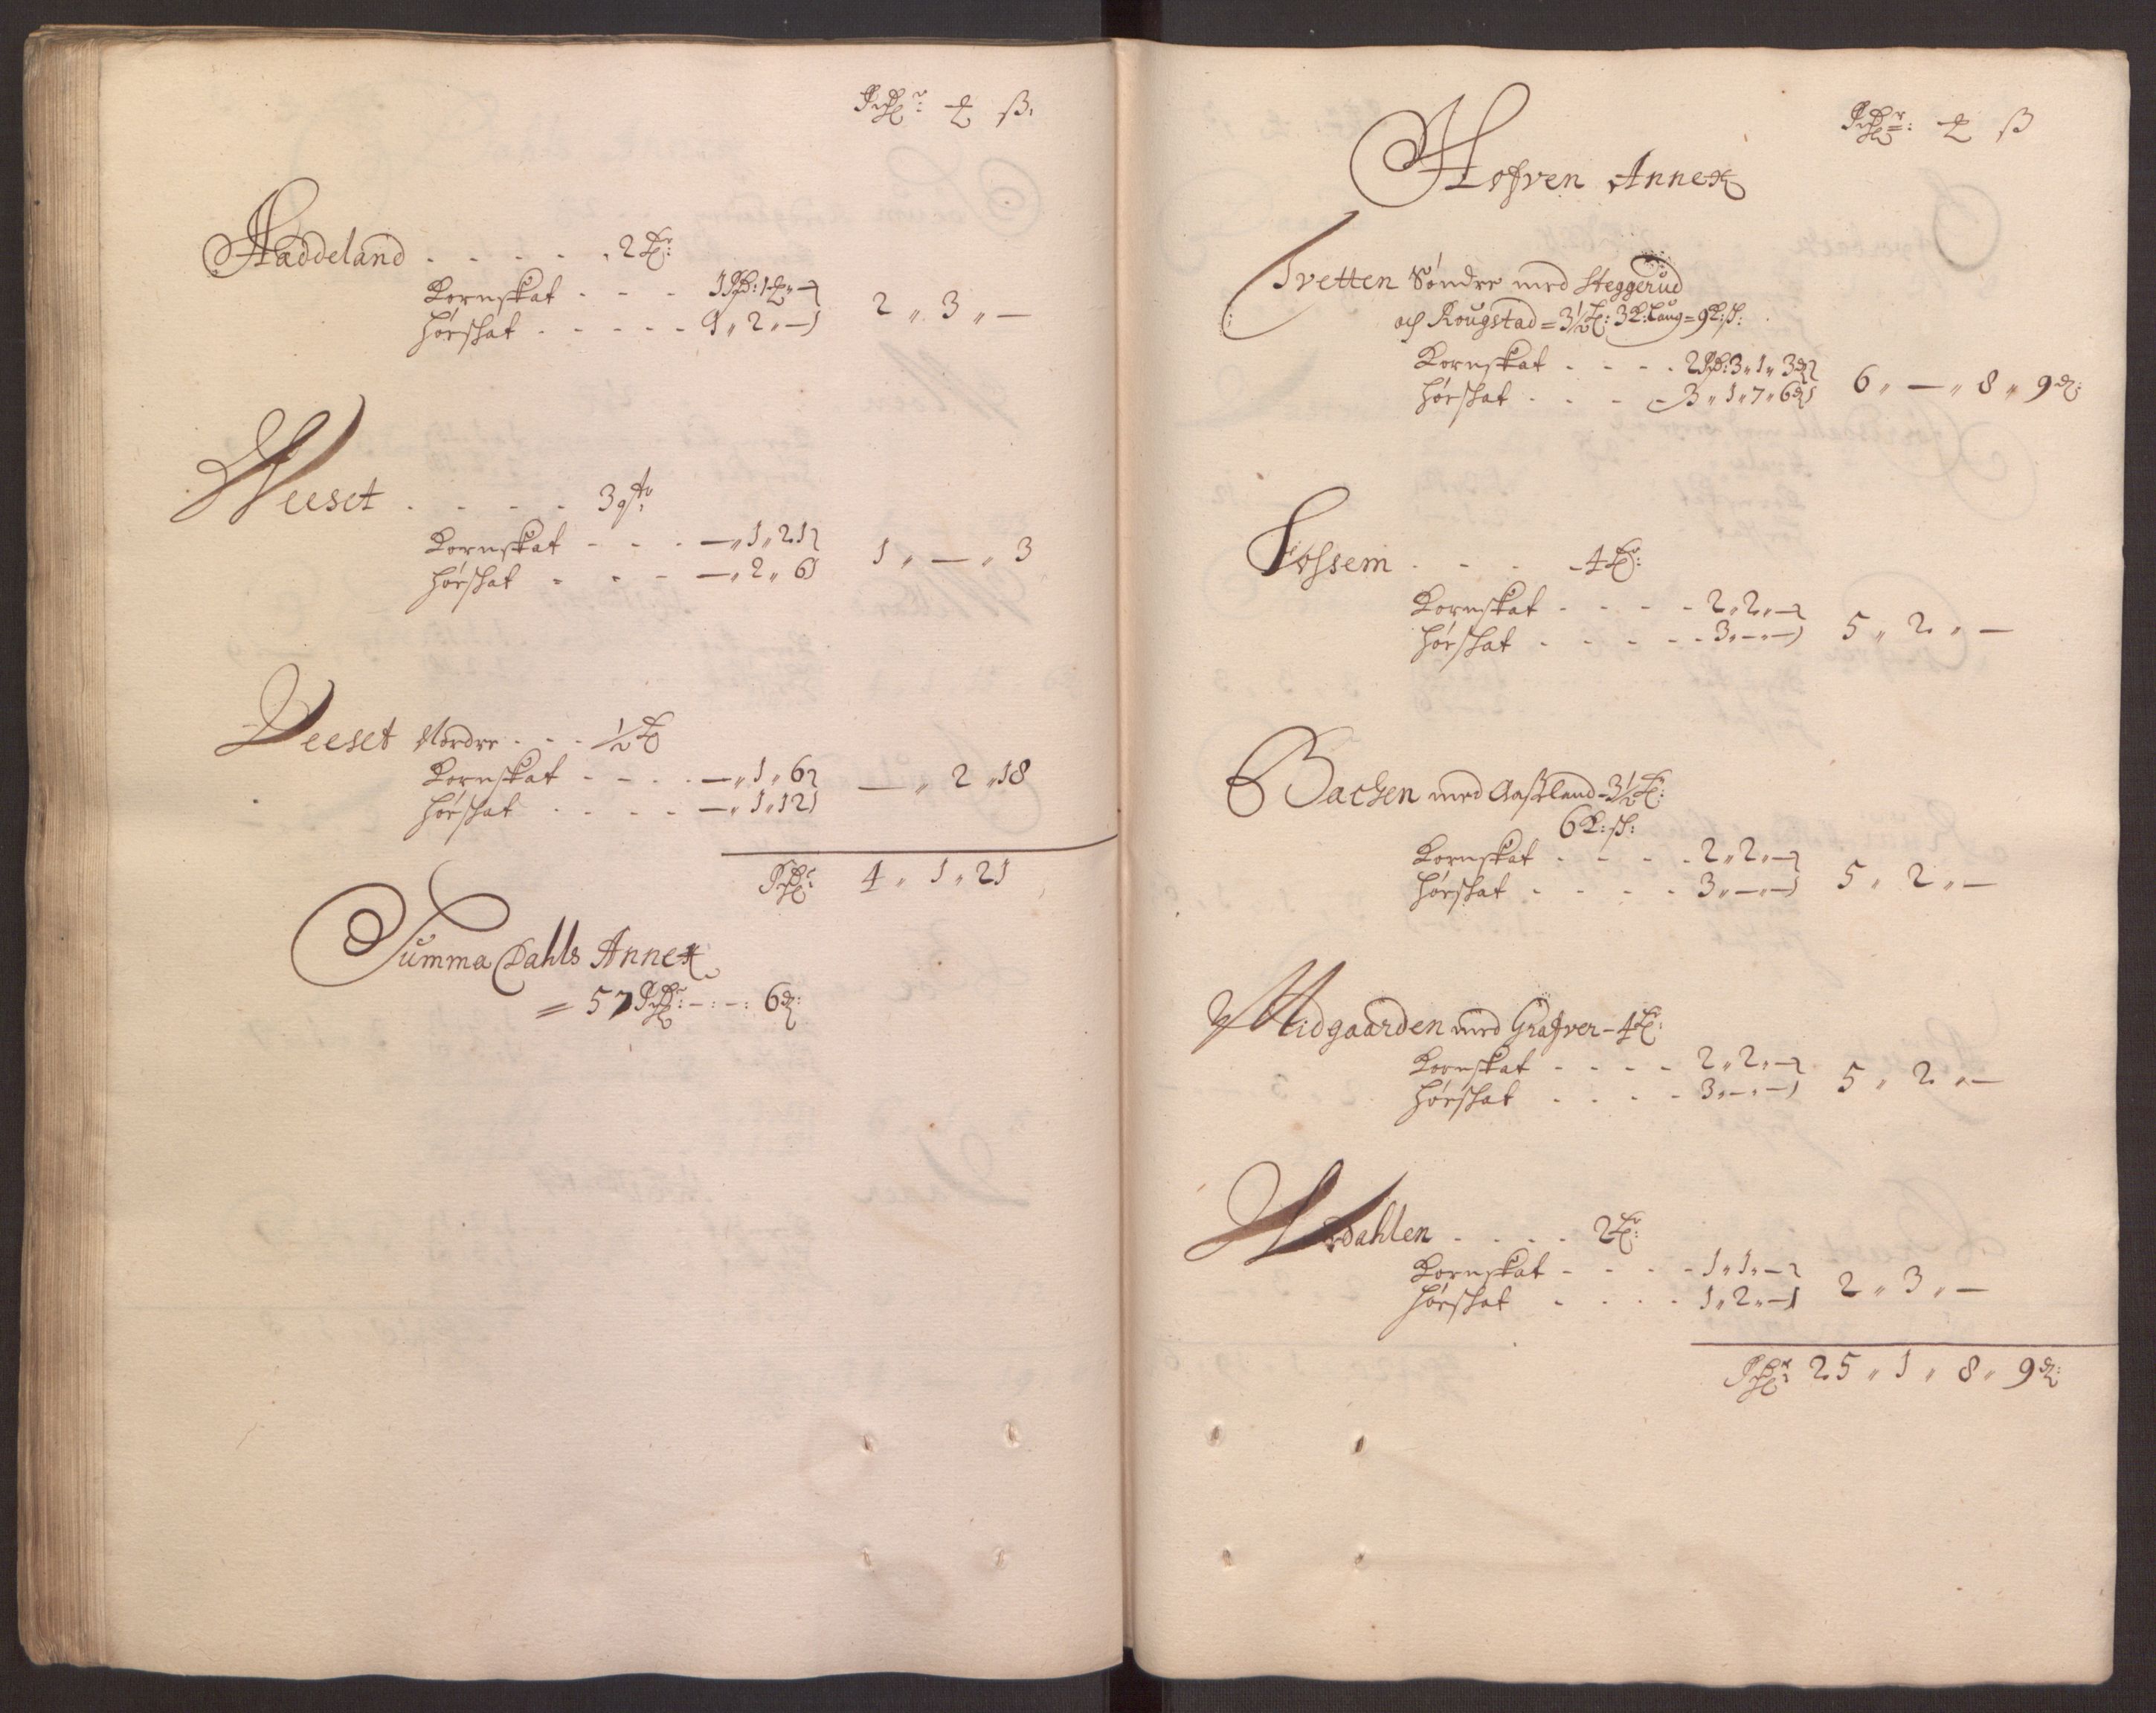 Rdr: ℔ ß.
Haddeland . . . . . . 2 Tr:
Kornskat - - - 1 Rd: 1 ℔ „ —
Hörskat . . . . - - 1 „ 2 „ —
2 „ 3 „ —
Weeset . . . . . 3 qtr
Kornskat - - - — „ 1 „ 21
Hörskat - - - — „ 2 „ 6
1 „ — „ 3
Veeset Nordre . . . ½ T
Kornskat - - - . — „ 1 „ 6
Hörskat . . . . - — „ 1 „ 12
— „ 2 „ 18
Rdr 4 „ 1 „ 21
Summa Dahls Annex
= 57 Rdr: — : — : 6 d:
Rdr: ℔ ß
Hofven Annex
Tvetten Söndre med Steggerud
och Rougstad = 3½ T: 3 K: Laug = 9 K: ß:
Kornskat . . - . 2 Rd: 3 „ 1 „ 3 d
Hörskat . . - - 3 „ 1 „ 7 „ 6 d
6 „ — „ 8 „ 9 d:
Fossem . - . - 4 Tr:
Kornskat - - - - 2 „ 2 „ —
Hörskat . - - - - 3 „ — „ —
5 „ 2 „ —
Bachen med Aaseland - 3½ T:
6 K: ß:
Kornskat - - - . 2 „ 2 „ —
Hörskat - . - . 3 „ — „ —
5 „ 2 „ —
Midgaarden med Grafver - 4 T:
Kornskat - - - - 2 „ 2 „ —
Hörskat . . . - 3 „ — „ —
5 „ 2 „ —
Wrdahlen . . . . 2 Tr:
Kornskat - - - - 1 „ 1 „ —
Hörskat - . . - 1 „ 2 „ —
2 „ 3 „ —
Rdr 25 „ 1 „ 8 „ 9 d: